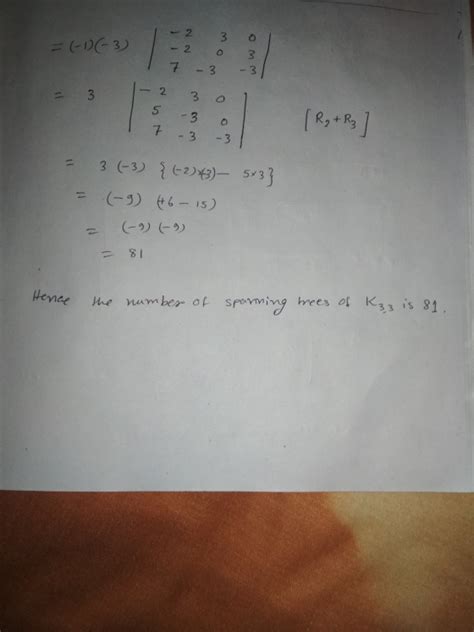 = (-1)(-3) | -2 3 0
-2 0 3
7 -3 -3 |
= 3 | -2 3 0
5 -3 0
7 -3 -3 | [R₂+R₃]
= 3 (-3) {(-2)×(-3) - 5×3}
= (-9) (+6 - 15)
= (-9) (-9)
= 81
Hence the number of spanning trees of K₃,₃ is 81.